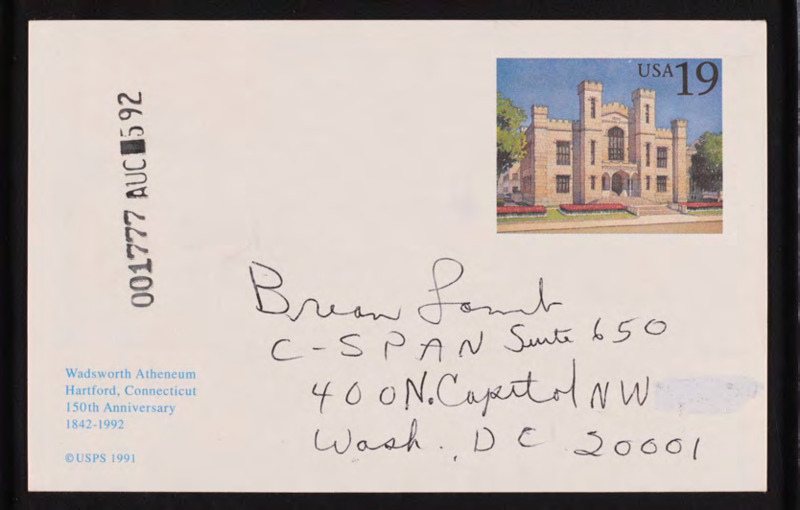 USA 19
0017777 AUG 5 92
Brian Lamb
C-SPAN Suite 650
400 N. Capitol NW
Wash., DC 20001
Wadsworth Atheneum
Hartford, Connecticut
150th Anniversary
1842-1992
©USPS 1991